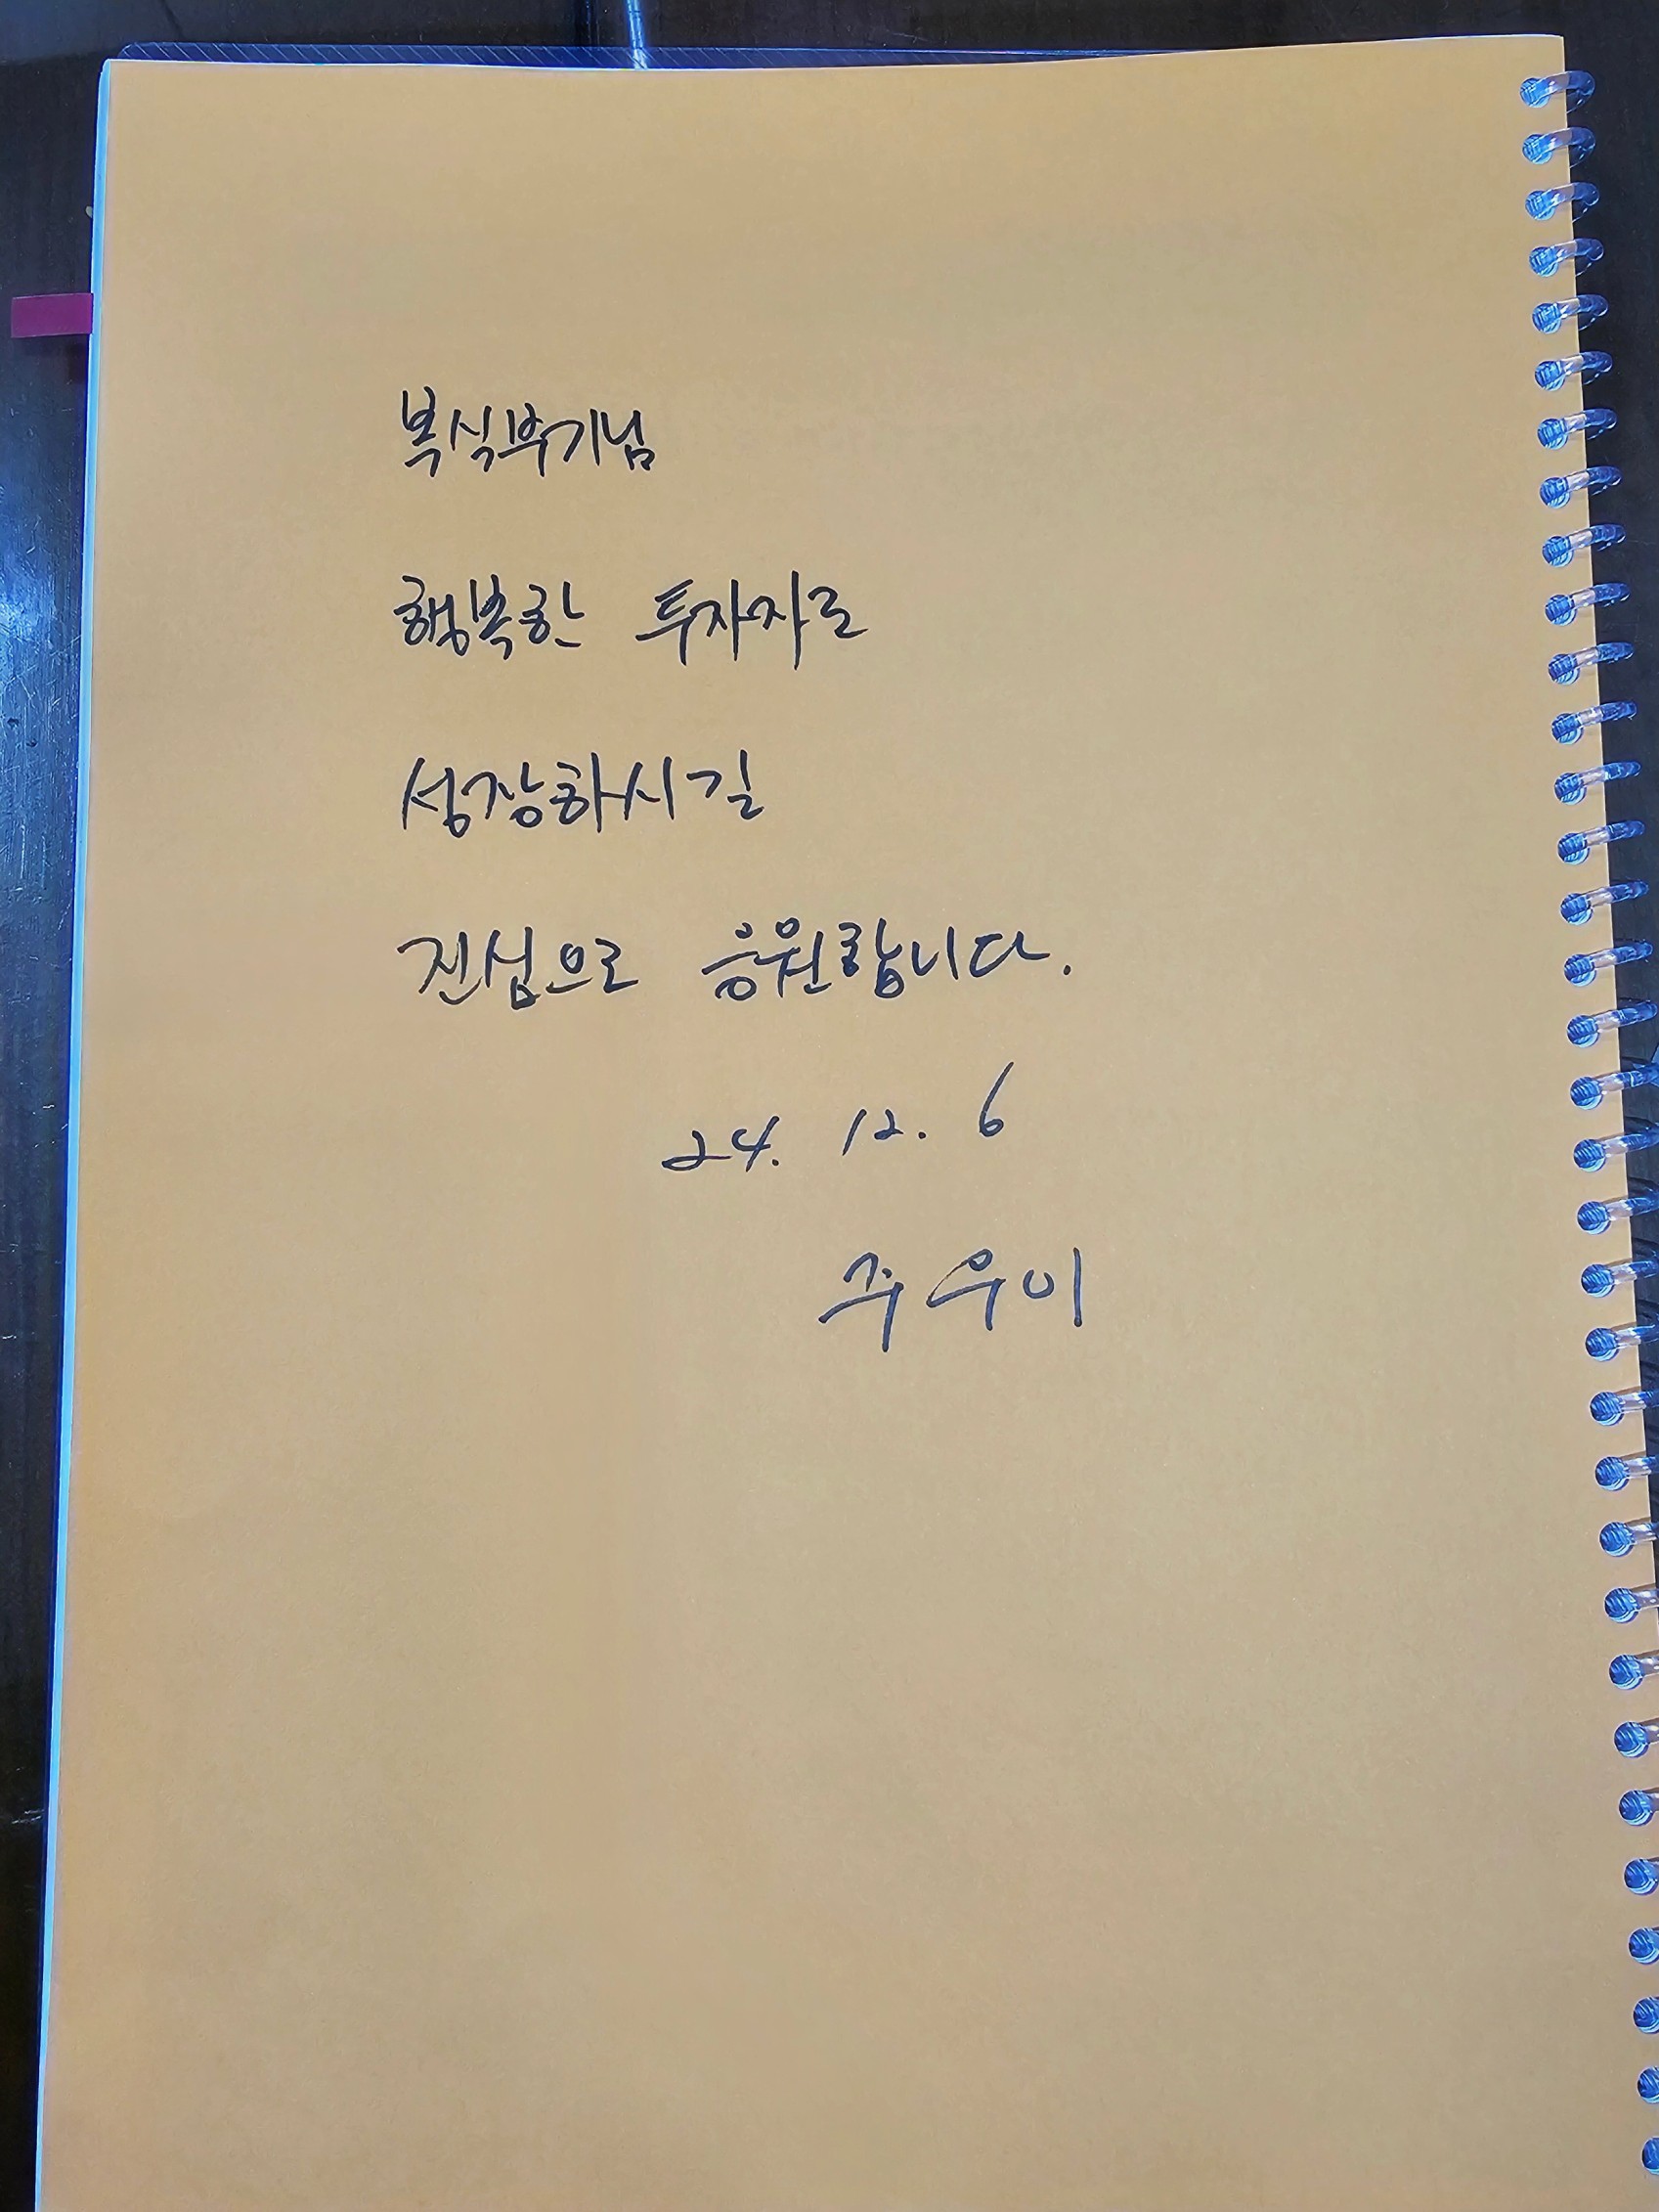 복식부기님
행복한 투자자로
성장하시길
진심으로 응원합니다.
24. 12. 6
주우이